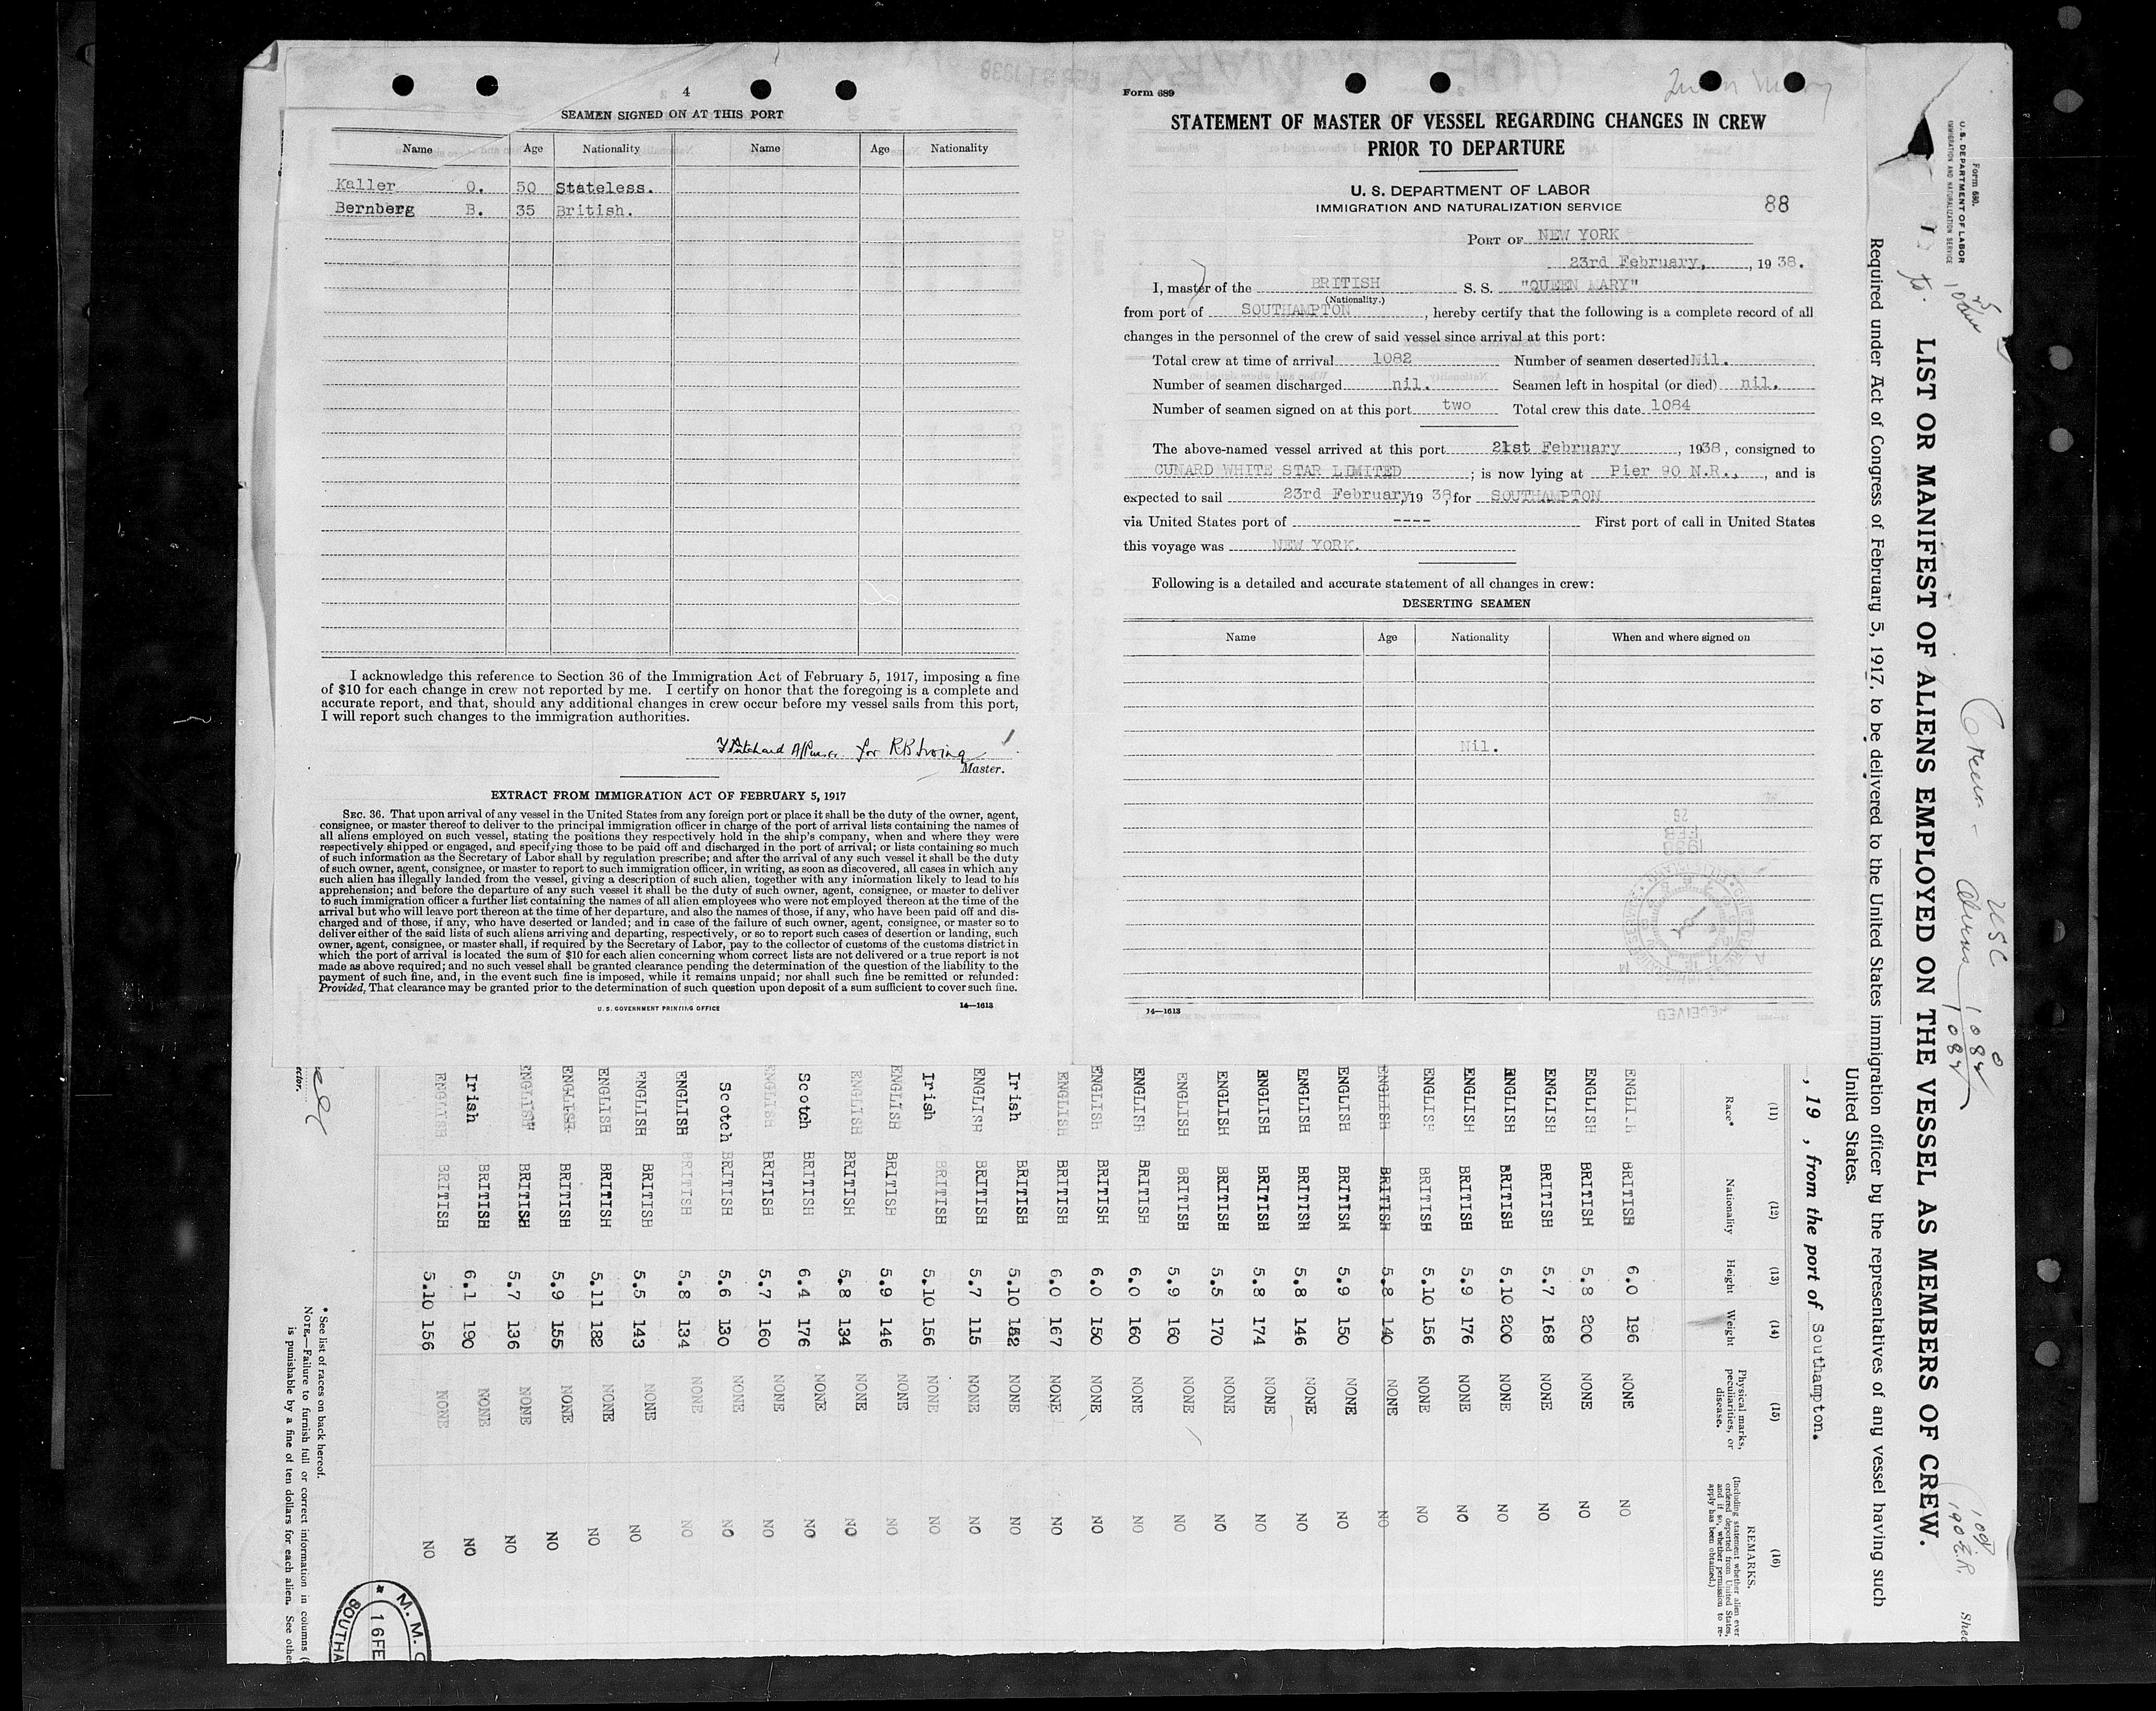 4
SEAMEN SIGNED ON AT THIS PORT
Name Age Nationality Name Age Nationality
Kaller O. 50 Stateless.
Bernberg B. 35 British.
I acknowledge this reference to Section 36 of the Immigration Act of February 5, 1917, imposing a fine
of $10 for each change in crew not reported by me. I certify on honor that the foregoing is a complete and
accurate report, and that, should any additional changes in crew occur before my vessel sails from this port,
I will report such changes to the immigration authorities.
for RB Irving
Master.
EXTRACT FROM IMMIGRATION ACT OF FEBRUARY 5, 1917
SEC. 36. That upon arrival of any vessel in the United States from any foreign port or place it shall be the duty of the owner, agent,
consignee, or master thereof to deliver to the principal immigration officer in charge of the port of arrival lists containing the names of
all aliens employed on such vessel, stating the positions they respectively hold in the ship's company, when and where they were
respectively shipped or engaged, and specifying those to be paid off and discharged in the port of arrival; or lists containing so much
of such information as the Secretary of Labor shall by regulation prescribe; and after the arrival of any such vessel it shall be the duty
of such owner, agent, consignee, or master to report to such immigration officer, in writing, as soon as discovered, all cases in which any
such alien has illegally landed from the vessel, giving a description of such alien, together with any information likely to lead to his
apprehension; and before the departure of any such vessel it shall be the duty of such owner, agent, consignee, or master to deliver
to such immigration officer a further list containing the names of all alien employees who were not employed thereon at the time of the
arrival but who will leave port thereon at the time of her departure, and also the names of those, if any, who have been paid off and dis-
charged and of those, if any, who have deserted or landed; and in case of the failure of such owner, agent, consignee, or master so to
deliver either of the said lists of such aliens arriving and departing, respectively, or so to report such cases of desertion or landing, such
owner, agent, consignee, or master shall, if required by the Secretary of Labor, pay to the collector of customs of the customs district in
which the port of arrival is located the sum of $10 for each alien concerning whom correct lists are not delivered or a true report is not
made as above required; and no such vessel shall be granted clearance pending the determination of the question of the liability to the
payment of such fine, and, in the event such fine is imposed, while it remains unpaid; nor shall such fine be remitted or refunded:
Provided, That clearance may be granted prior to the determination of such question upon deposit of a sum sufficient to cover such fine.
U. S. GOVERNMENT PRINTING OFFICE 14—1613
Form 689
Queen Mary
STATEMENT OF MASTER OF VESSEL REGARDING CHANGES IN CREW
PRIOR TO DEPARTURE
U. S. DEPARTMENT OF LABOR
IMMIGRATION AND NATURALIZATION SERVICE
88
PORT OF NEW YORK
23rd February, , 19 38.
I, master of the BRITISH S. S. "QUEEN MARY"
(Nationality.)
from port of SOUTHAMPTON , hereby certify that the following is a complete record of all
changes in the personnel of the crew of said vessel since arrival at this port:
Total crew at time of arrival 1082 Number of seamen deserted Nil.
Number of seamen discharged nil. Seamen left in hospital (or died) nil.
Number of seamen signed on at this port two Total crew this date 1084
The above-named vessel arrived at this port 21st February , 1938, consigned to
CUNARD WHITE STAR LIMITED ; is now lying at Pier 90 N.R., , and is
expected to sail 23rd February, 19 38, for SOUTHAMPTON
via United States port of ---- First port of call in United States
this voyage was NEW YORK.
Following is a detailed and accurate statement of all changes in crew:
DESERTING SEAMEN
Name Age Nationality When and where signed on
Nil.
14—1613
Form 680.
U. S. DEPARTMENT OF LABOR
IMMIGRATION AND NATURALIZATION SERVICE
LIST OR MANIFEST OF ALIENS EMPLOYED ON THE VESSEL AS MEMBERS OF CREW.
Required under Act of Congress of February 5, 1917, to be delivered to the United States immigration officer by the representatives of any vessel having such
United States.
, 19 , from the port of Southampton.
(11) (12) (13) (14) (15) (16)
Race* Nationality Height Weight Physical marks, peculiarities, or disease. REMARKS. (Including statement whether alien ever ordered deported from United States, and if so, whether permission to reapply has been obtained.)
ENGLISH BRITISH 6.0 196 NONE NO
ENGLISH BRITISH 5.8 200 NONE NO
ENGLISH BRITISH 5.7 168 NONE NO
ENGLISH BRITISH 5.10 200 NONE NO
ENGLISH BRITISH 5.9 176 NONE NO
ENGLISH BRITISH 5.10 156 NONE NO
ENGLISH BRITISH 5.8 140 NONE NO
ENGLISH BRITISH 5.9 150 NONE NO
ENGLISH BRITISH 5.8 146 NONE NO
ENGLISH BRITISH 5.8 174 NONE NO
ENGLISH BRITISH 5.5 170 NONE NO
ENGLISH BRITISH 5.9 160 NONE NO
ENGLISH BRITISH 6.0 160 NONE NO
ENGLISH BRITISH 6.0 150 NONE NO
ENGLISH BRITISH 6.0 167 NONE NO
Irish BRITISH 5.10 152 NONE NO
ENGLISH BRITISH 5.7 115 NONE NO
Irish BRITISH 5.10 156 NONE NO
ENGLISH BRITISH 5.9 146 NONE NO
ENGLISH BRITISH 5.8 134 NONE NO
Scotch BRITISH 6.4 176 NONE NO
ENGLISH BRITISH 5.7 160 NONE NO
Scotch BRITISH 5.6 130 NONE NO
ENGLISH BRITISH 5.8 134 NONE NO
ENGLISH BRITISH 5.5 143 NONE NO
ENGLISH BRITISH 5.11 182 NONE NO
ENGLISH BRITISH 5.9 155 NONE NO
ENGLISH BRITISH 5.7 136 NONE NO
Irish BRITISH 6.1 190 NONE NO
ENGLISH BRITISH 5.10 156 NONE NO
* See list of races on back hereof.
NOTE.—Failure to furnish full or correct information in columns (
is punishable by a fine of ten dollars for each alien. See other
M. M.
16 FE
SOUTHA